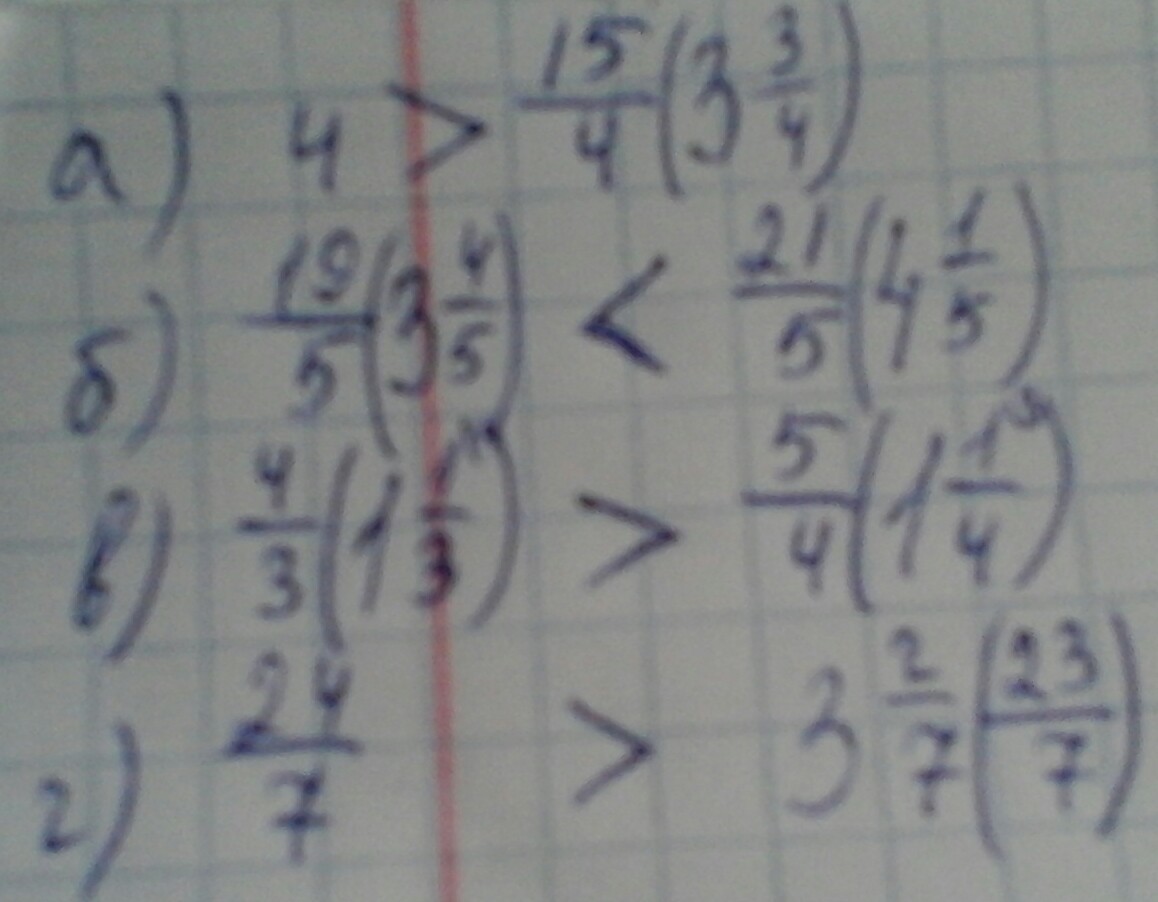 а) 4 > 15/4 (3 3/4)
б) 19/5 (3 4/5) < 21/5 (4 1/5)
в) 4/3 (1 1/3) > 5/4 (1 1/4)
г) 24/7 > 3 2/7 (23/7)